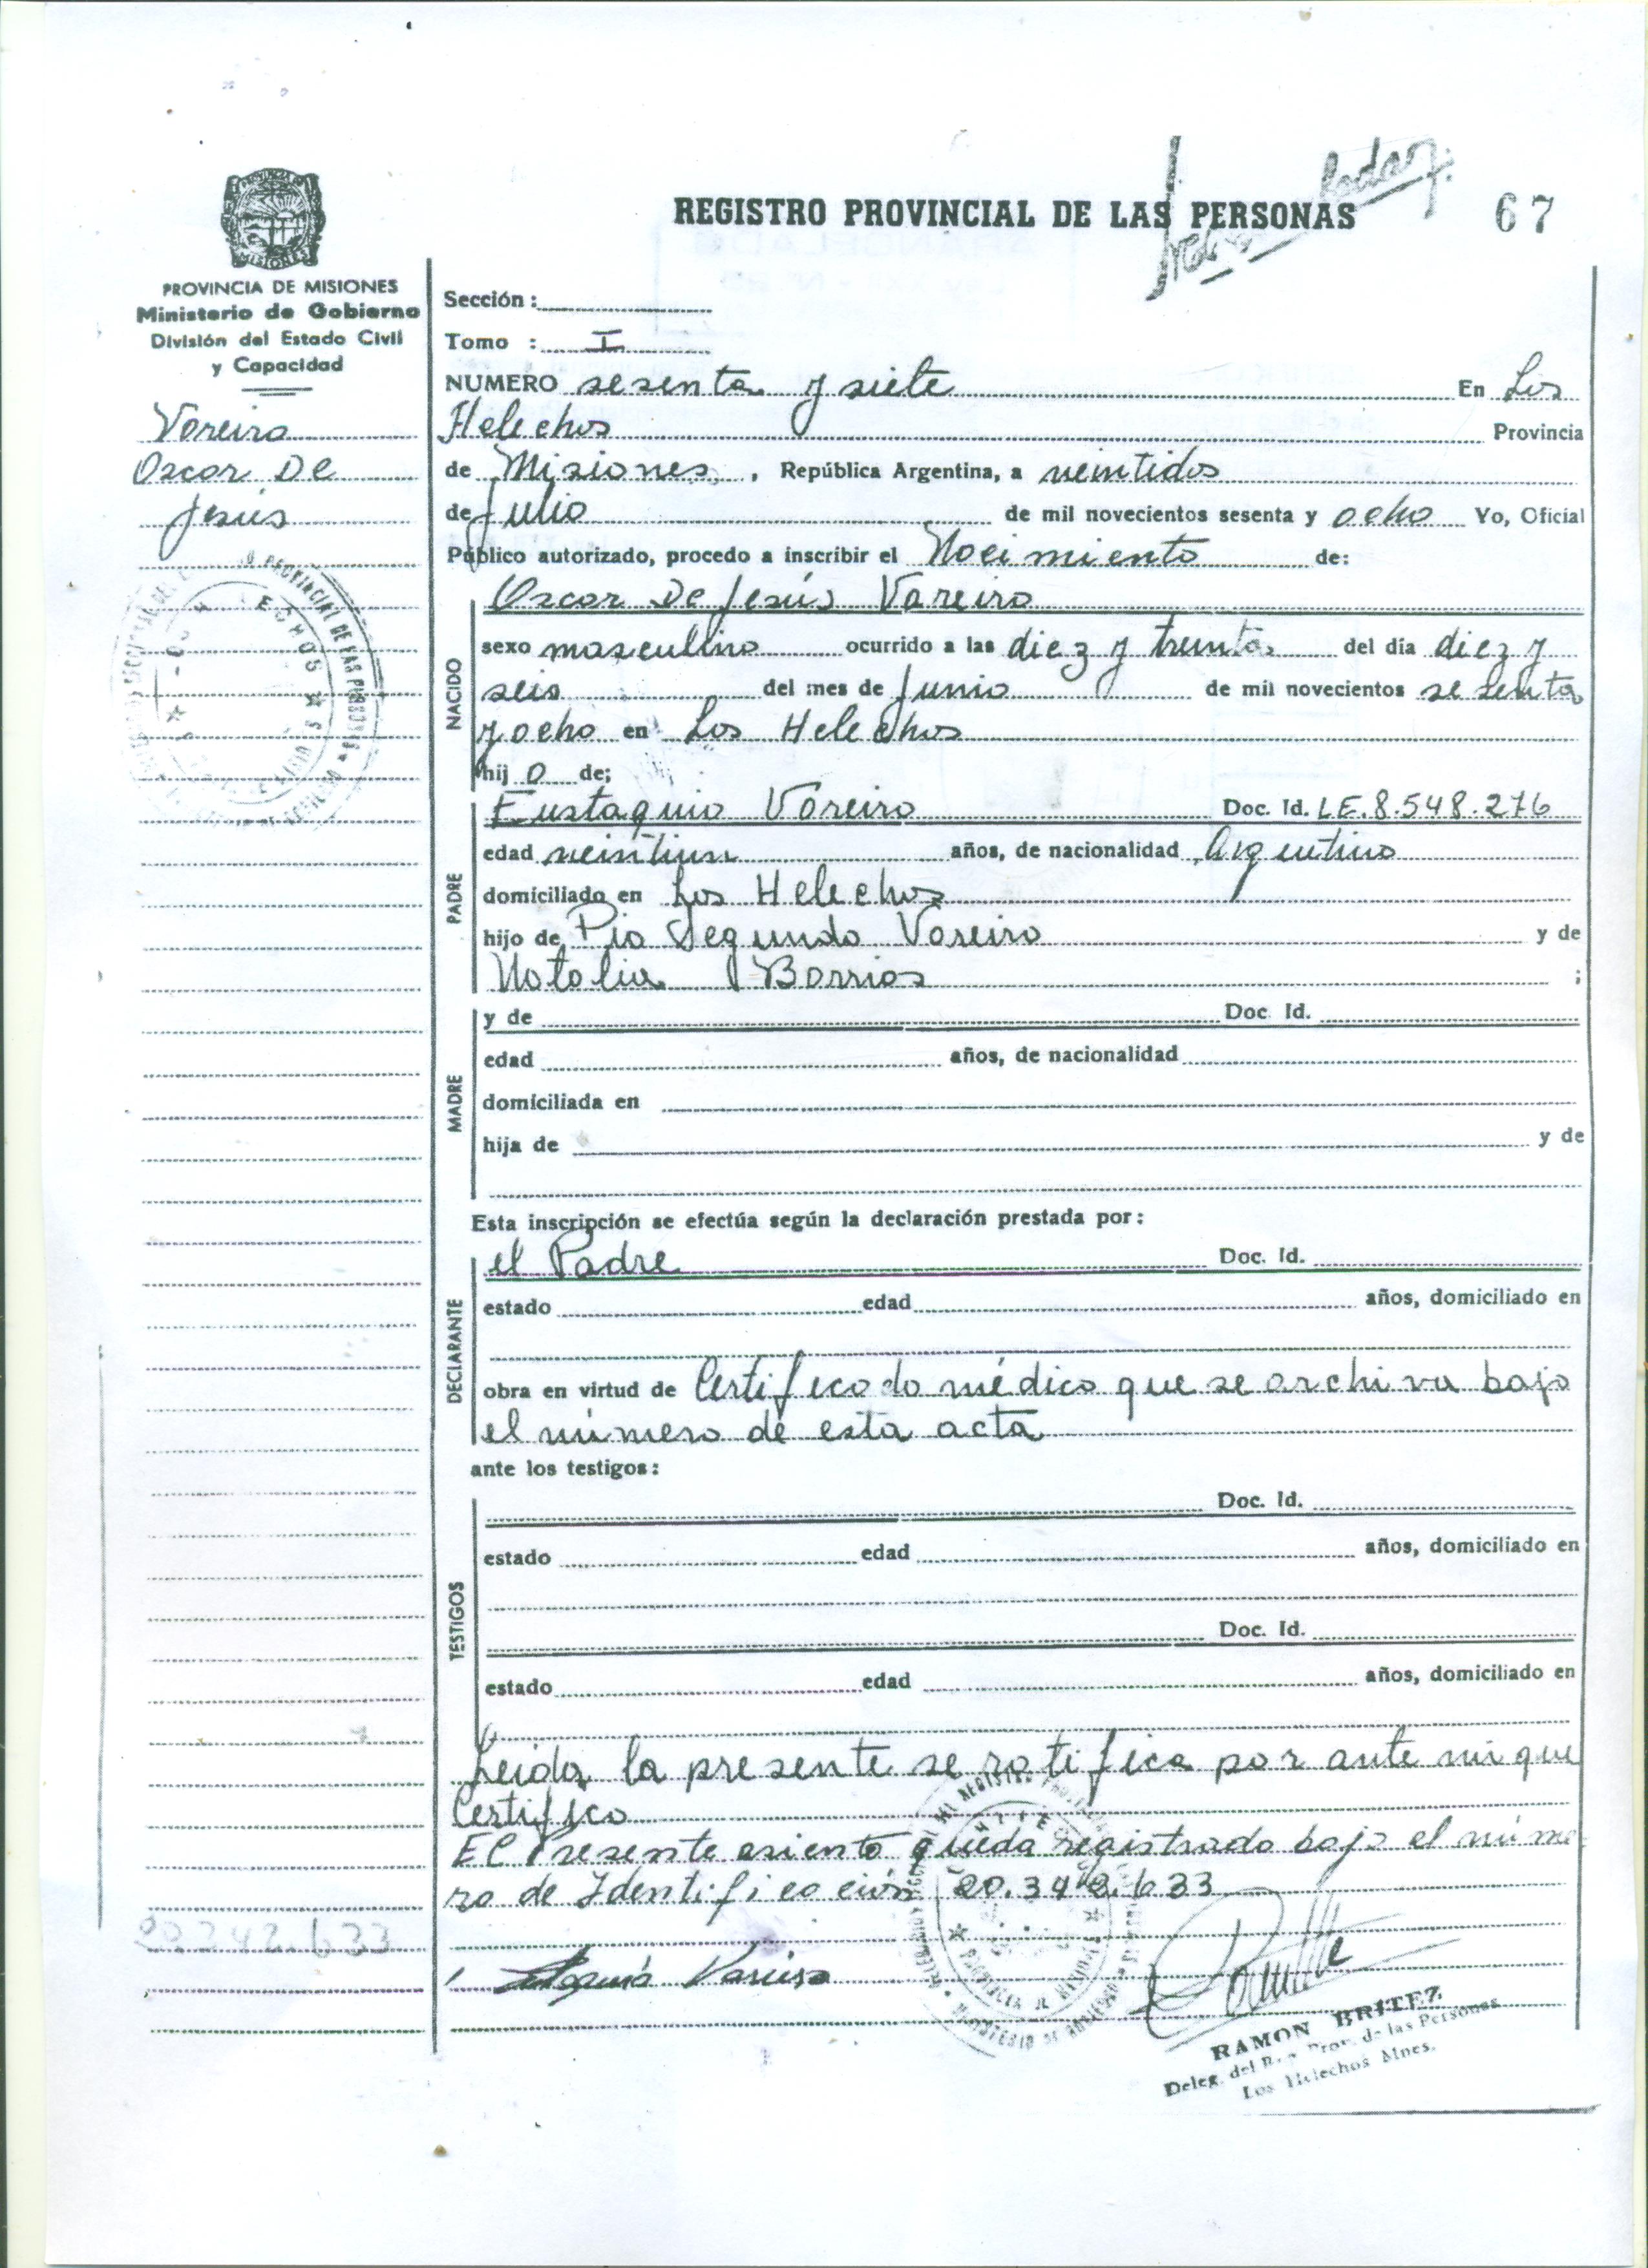 REGISTRO PROVINCIAL DE LAS PERSONAS
67
PROVINCIA DE MISIONES
Ministerio de Gobierno
División del Estado Civil
y Capacidad
Vareiro
Oscar De
Jesús
Sección:
Tomo : I
NUMERO sesenta y siete En Los
Helechos Provincia
de Misiones, República Argentina, a veintidos
de Julio de mil novecientos sesenta y ocho Yo, Oficial
Público autorizado, procedo a inscribir el Nacimiento de:
Oscar De Jesús Vareiro
NACIDO
sexo masculino ocurrido a las diez y treinta del día diez y
seis del mes de Junio de mil novecientos sesenta
y ocho en Los Helechos
hij o de;
PADRE
Eustaquio Vareiro Doc. Id. LE.8.548.276
edad veintiun años, de nacionalidad Argentino
domiciliado en Los Helechos
hijo de Pio Segundo Vareiro y de
Natalia Barrios ;
MADRE
y de Doc. Id.
edad años, de nacionalidad
domiciliada en
hija de y de
Esta inscripción se efectúa según la declaración prestada por:
DECLARANTE
el Padre Doc. Id.
estado edad años, domiciliado en
obra en virtud de Certificado médico que se archiva bajo
el número de esta acta
ante los testigos:
TESTIGOS
Doc. Id.
estado edad años, domiciliado en
Doc. Id.
estado edad años, domiciliado en
Leida la presente se ratifica por ante mi que
Certifico
El Presente asiento queda registrado bajo el núme
ro de Identificación 20.342.633
20.342.633
Vareiro
RAMON BRITEZ
Deleg. del Reg. Prov. de las Personas
Los Helechos Mnes.